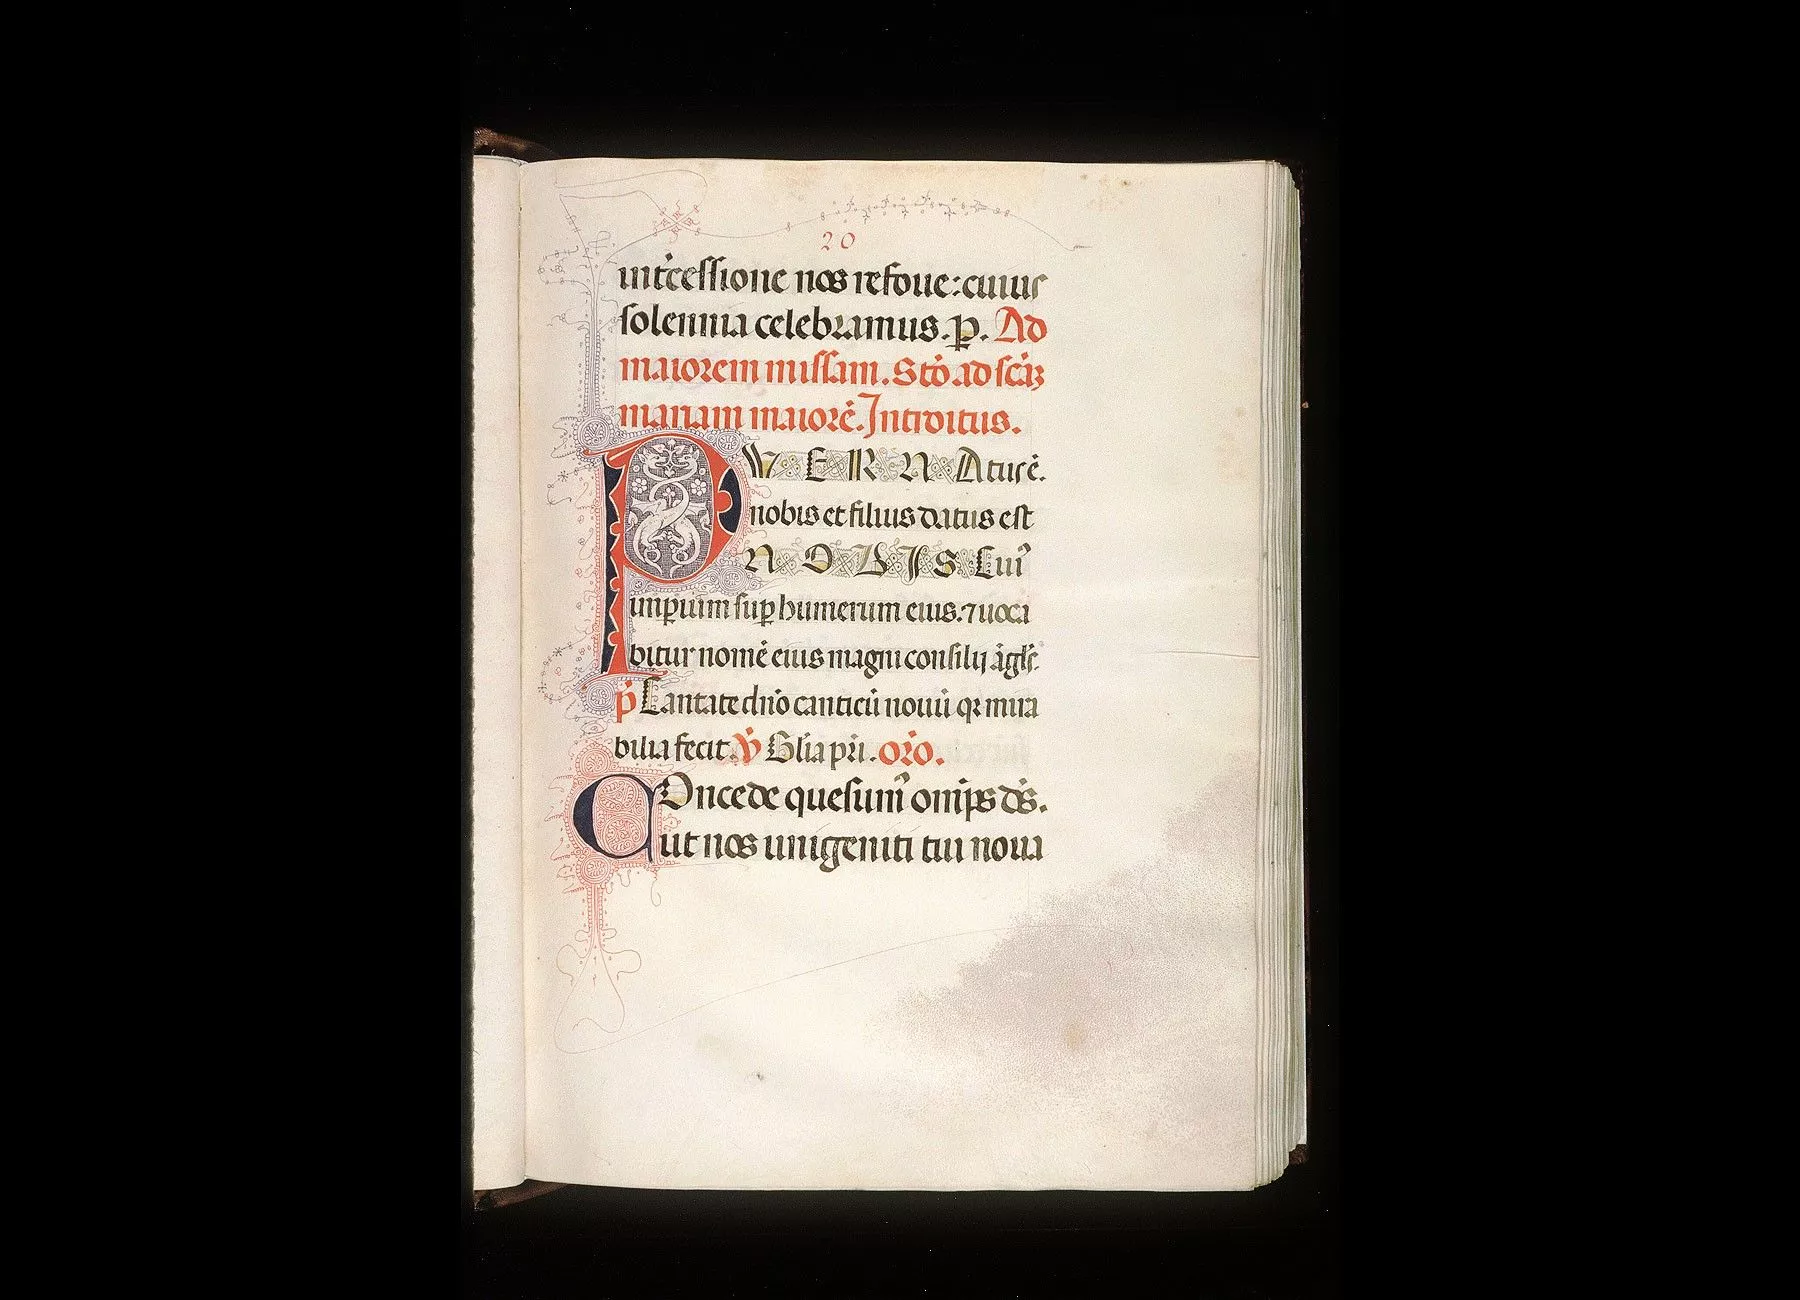 20
int͛cessione nos refoue: cuius
solennia celebramus. p̱. Ad
maiorem missam. Stō ad scāꝝ
mariam maiorē. Introitus.
PVER NAtus ē.
nobis et filius datus est
NOBIS Cui᷒
imꝑium suꝑ humerum eius. ⁊ uoca
bitur nomē eius magni consilij āgl's.
p̄s Cantate dn̄o canticū nouū qꝛ mira
bilia fecit. ℣ Gl'ia pr̄i. or̄o.
COncede quesum᷒ om̄ps ds̄.
Ut nos unigeniti tui noua